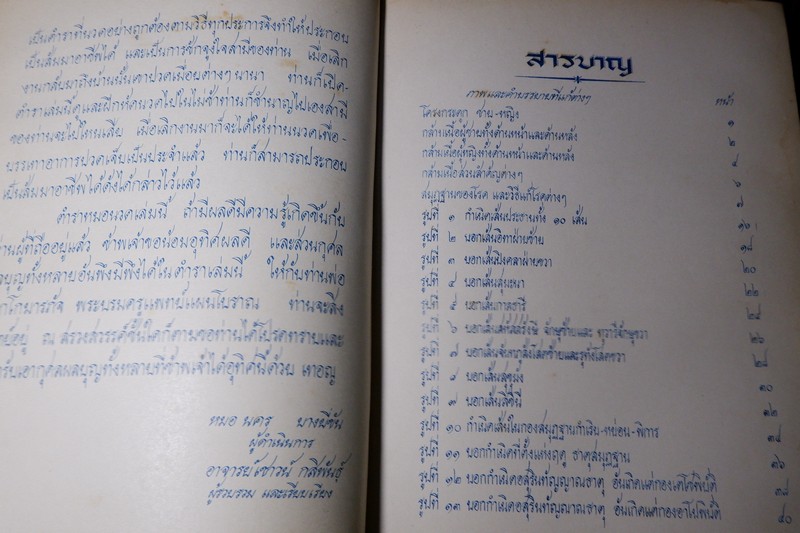 เป็นตำราที่นวดอย่างถูกต้องตามวิธีทุกประการจึงทำให้ประกอบ
เป็นสัมมาอาชีพได้ และเป็นการชักจูงใจสามีของท่าน เมื่อเลิก
งานกลับมาถึงบ้านนั้นเขาปวดเมื่อยต่างๆนานา ท่านก็เปิด-
ตำราเล่มนี้ดูและฝึกหัดนวดไปไม่ช้าท่านก็ชำนาญไปเองสามี
ของท่านจะไปไหนเสีย เมื่อเลิกงานมาก็จะได้ให้ท่านนวดเพื่อ-
บรรเทาอาการปวดเจ็บเป็นประจำแล้ว ท่านก็สามารถประกอบ
เป็นสัมมาอาชีพได้ดังได้กล่าวไว้แล้ว
ตำราหมอนวดเล่มนี้ ถ้ามีผลดีมีความรู้เกิดขึ้นกับ
านผู้ที่ถืออยู่แล้ว ข้าพเจ้าขอน้อมอุทิศผลดี และส่วนกุศล
บุญทั้งหลายอันพึงมีพึงได้ในตำราเล่มนี้ ให้กับท่านพ่อ
โกมารภัจ พระบรมครูแพทย์แผนโบราณ ท่านจะสิง
อยู่ ณ สรวงสวรรค์ชั้นใดก็ตามขอท่านได้โปรดทราบและ
รับเอากุศลผลบุญทั้งหลายที่ข้าพเจ้าได้อุทิศนี้ด้วย เทอญ
หมอ นคร บางยี่ขัน
ผู้ดำเนินการ
อาจารย์เชาวน์ กสิพันธุ์
ผู้รวบรวม และเรียบเรียง
สารบาญ
ภาพและคำบรรยายที่แก้ต่างๆ หน้า
โครงกระดูก ชาย-หญิง ๑
กล้ามเนื้อผู้ชายทั้งด้านหน้าและด้านหลัง ๒
กล้ามเนื้อผู้หญิงทั้งด้านหน้าและด้านหลัง ๔
กล้ามเนื้อส่วนสำคัญต่างๆ ๖
สมุฏฐานของโรค และวิธีแก้โรคต่างๆ ๗
รูปที่ ๑ กำเนิดเส้นประธานทั้ง ๑๐ เส้น ๑๖
รูปที่ ๒ บอกเส้นอิทาฝ่ายซ้าย ๑๘
รูปที่ ๓ บอกเส้นปิงคลาฝ่ายขวา ๒๐
รูปที่ ๔ บอกเส้นสุมะนา ๒๒
รูปที่ ๕ บอกเส้นกาลธารี ๒๔
รูปที่ ๖ บอกเส้นสหัสรังษี จักษุซ้ายและ ทวารีจักษุขวา ๒๖
รูปที่ ๗ บอกเส้นจันทภูสังโสตซ้ายและรุทังโสตขวา ๒๘
รูปที่ ๘ บอกเส้นสุขุมัง ๓๐
รูปที่ ๙ บอกเส้นสิขินี ๓๒
รูปที่ ๑๐ กำเนิดเส้นในกองสมุฏฐานกำเริบ-หย่อน-พิการ ๓๔
รูปที่ ๑๑ บอกกำเนิดที่ตั้งแห่งฤดู ธาตุสมุฏฐาน ๓๖
รูปที่ ๑๒ บอกกำเนิดอสุรินทัญญาณธาตุ อันเกิดแต่กองเตโชพิบัติ ๓๘
รูปที่ ๑๓ บอกกำเนิดอสุรินทัญญาณธาตุ อันเกิดแต่กองอาโปพิบัติ ๔๐